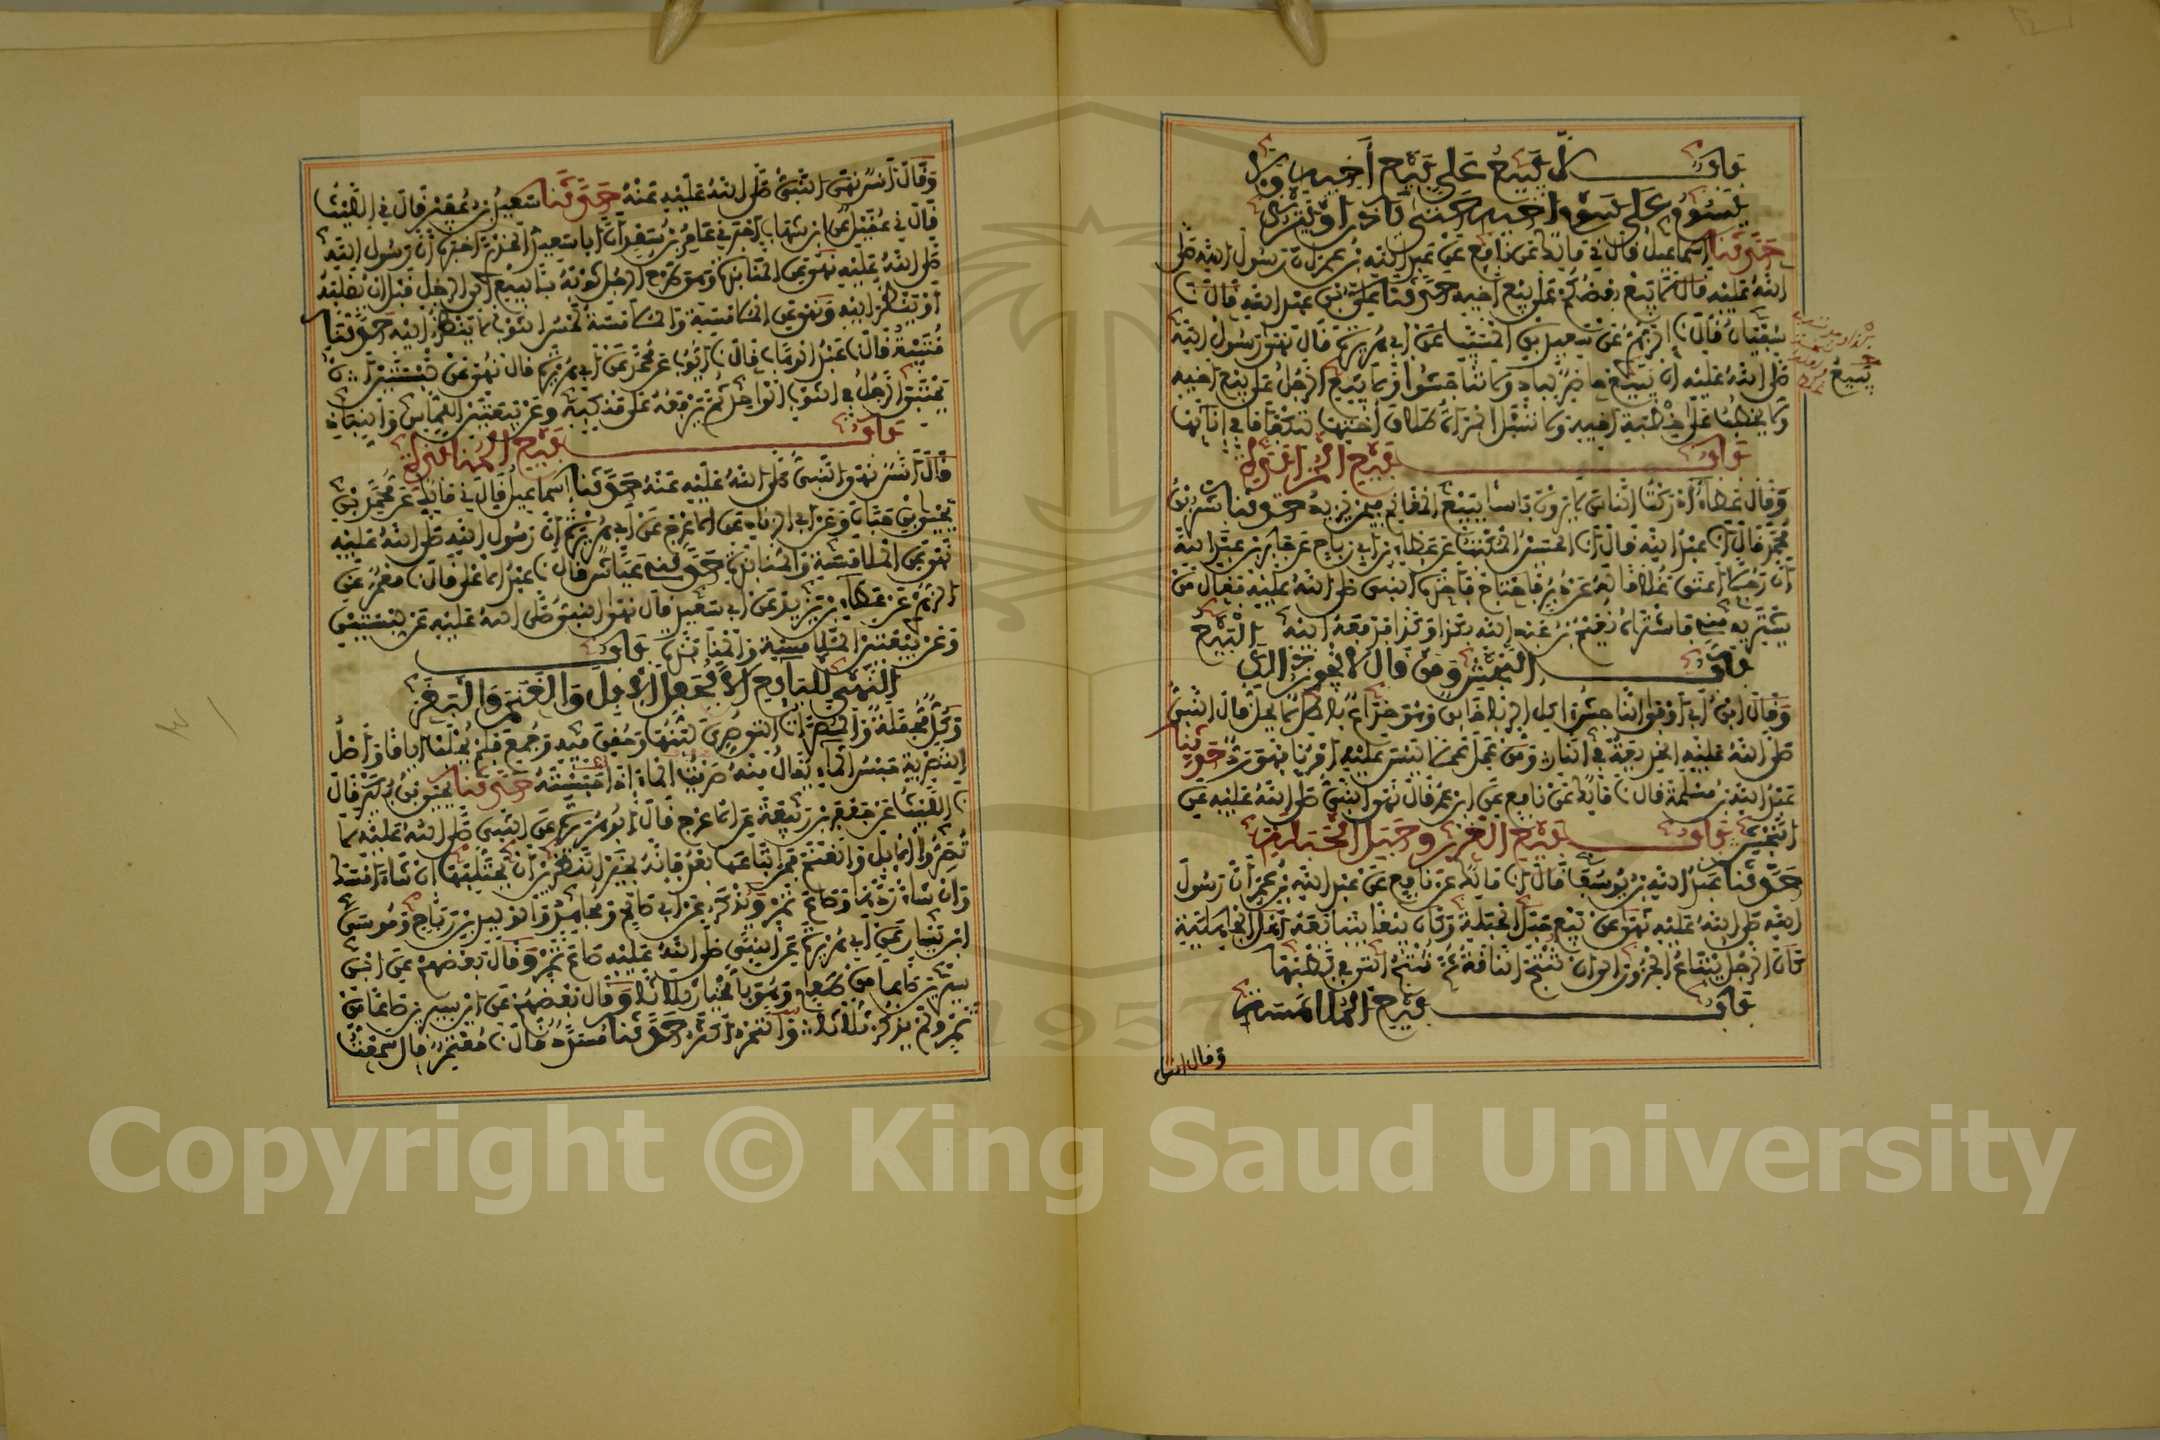 باب لا يبيع على بيع أخيه ولا
يسوم على سوم أخيه حتى يأذن له أو يترك
حدثنا إسماعيل قال ني مالك عن نافع عن عبد الله بن عمر أن رسول الله صلى
الله عليه قال لا يبيع بعضكم على بيع أخيه حدثنا علي بن عبد الله قال نا
سفيان قال نا الزهري عن سعيد بن المسيب عن أبي هريرة قال نهى رسول الله
صلى الله عليه أن يبيع حاضر لباد ولا تناجشوا ولا يبيع الرجل على بيع أخيه
ولا يخطب على خطبة أخيه ولا تسأل المرأة طلاق أختها لتكفأ ما في إنائها
باب بيع المزايدة
وقال عطاء أدركت الناس لا يرون بأسا ببيع المغانم فيمن يزيد حدثنا بشر بن
محمد قال أنا عبد الله قال أنا الحسين المكتب عن عطاء بن أبي رباح عن جابر بن عبد الله
أن رجلا أعتق غلاما له عن دبر فاحتاج فأخذه النبي صلى الله عليه فقال من
يشتريه مني فاشتراه نعيم بن عبد الله بكذا وكذا فدفعه إليه
باب النجش ومن قال لا يجوز ذلك البيع
وقال ابن أبي أوفى الناجش آكل الربا خائن وهو خداع باطل لا يحل قال النبي
صلى الله عليه الخديعة في النار ومن عمل عملا ليس عليه أمرنا فهو رد حدثنا
عبد الله بن مسلمة قال نا مالك عن نافع عن ابن عمر قال نهى النبي صلى الله عليه عن
النجش باب بيع الغرر وحبل الحبلة
حدثنا عبد الله بن يوسف قال أنا مالك عن نافع عن عبد الله بن عمر أن رسول
الله صلى الله عليه نهى عن بيع حبل الحبلة وكان بيعا يتبايعه أهل الجاهلية
كان الرجل يبتاع الجزور إلى أن تنتج الناقة ثم تنتج التي في بطنها
باب بيع الملامسة
وقال أنس
يبيع
وقال أنس نهى النبي صلى الله عليه عنه حدثنا سعيد بن عفير قال ني الليث
قال ني عقيل عن ابن شهاب أخبرني عامر بن سعد أن أبا سعيد الخدري أخبره أن رسول الله
صلى الله عليه نهى عن المنابذة وهي طرح الرجل ثوبه بالبيع إلى الرجل قبل أن يقلبه
أو ينظر إليه ونهى عن الملامسة والملامسة لمس الثوب لا ينظر إليه حدثنا
قتيبة قال نا عبد الوهاب قال نا أيوب عن محمد عن أبي هريرة قال نهي عن لبستين أن
يحتبي الرجل في الثوب الواحد ثم يرفعه على منكبه وعن بيعتين اللماس والنباذ
باب بيع المنابذة
قال أنس نهى النبي صلى الله عليه عنه حدثنا إسماعيل قال ني مالك عن محمد بن
يحيى بن حبان وعن أبي الزناد عن الأعرج عن أبي هريرة أن رسول الله صلى الله عليه
نهى عن الملامسة والمنابذة حدثني عياش قال نا عبد الأعلى قال نا معمر عن
الزهري عن عطاء بن يزيد عن أبي سعيد قال نهى النبي صلى الله عليه عن لبستين
وعن بيعتين الملامسة والمنابذة باب
النهي للبائع ألا يحفل الإبل والغنم والبقر
وكل محفلة والمصراة التي صري لبنها وحقن فيه وجمع فلم يحلب أياما وأصل
التصرية حبس الماء يقال منه صريت الماء إذا حبسته حدثنا يحيى بن بكير قال
نا الليث عن جعفر بن ربيعة عن الأعرج قال أبو هريرة عن النبي صلى الله عليه لا
تصروا الإبل والغنم فمن ابتاعها بعد فإنه بخير النظرين أن يحتلبها إن شاء أمسك
وإن شاء ردها وصاع تمر ويذكر عن أبي صالح ومجاهد والوليد بن رباح وموسى
ابن يسار عن أبي هريرة عن النبي صلى الله عليه صاع تمر وقال بعضهم عن ابن
سيرين صاعا من طعام وهو بالخيار ثلاثا وقال بعضهم عن ابن سيرين صاعا من
تمر ولم يذكر ثلاثا والتمر أكثر حدثنا مسدد قال نا معتمر قال سمعت